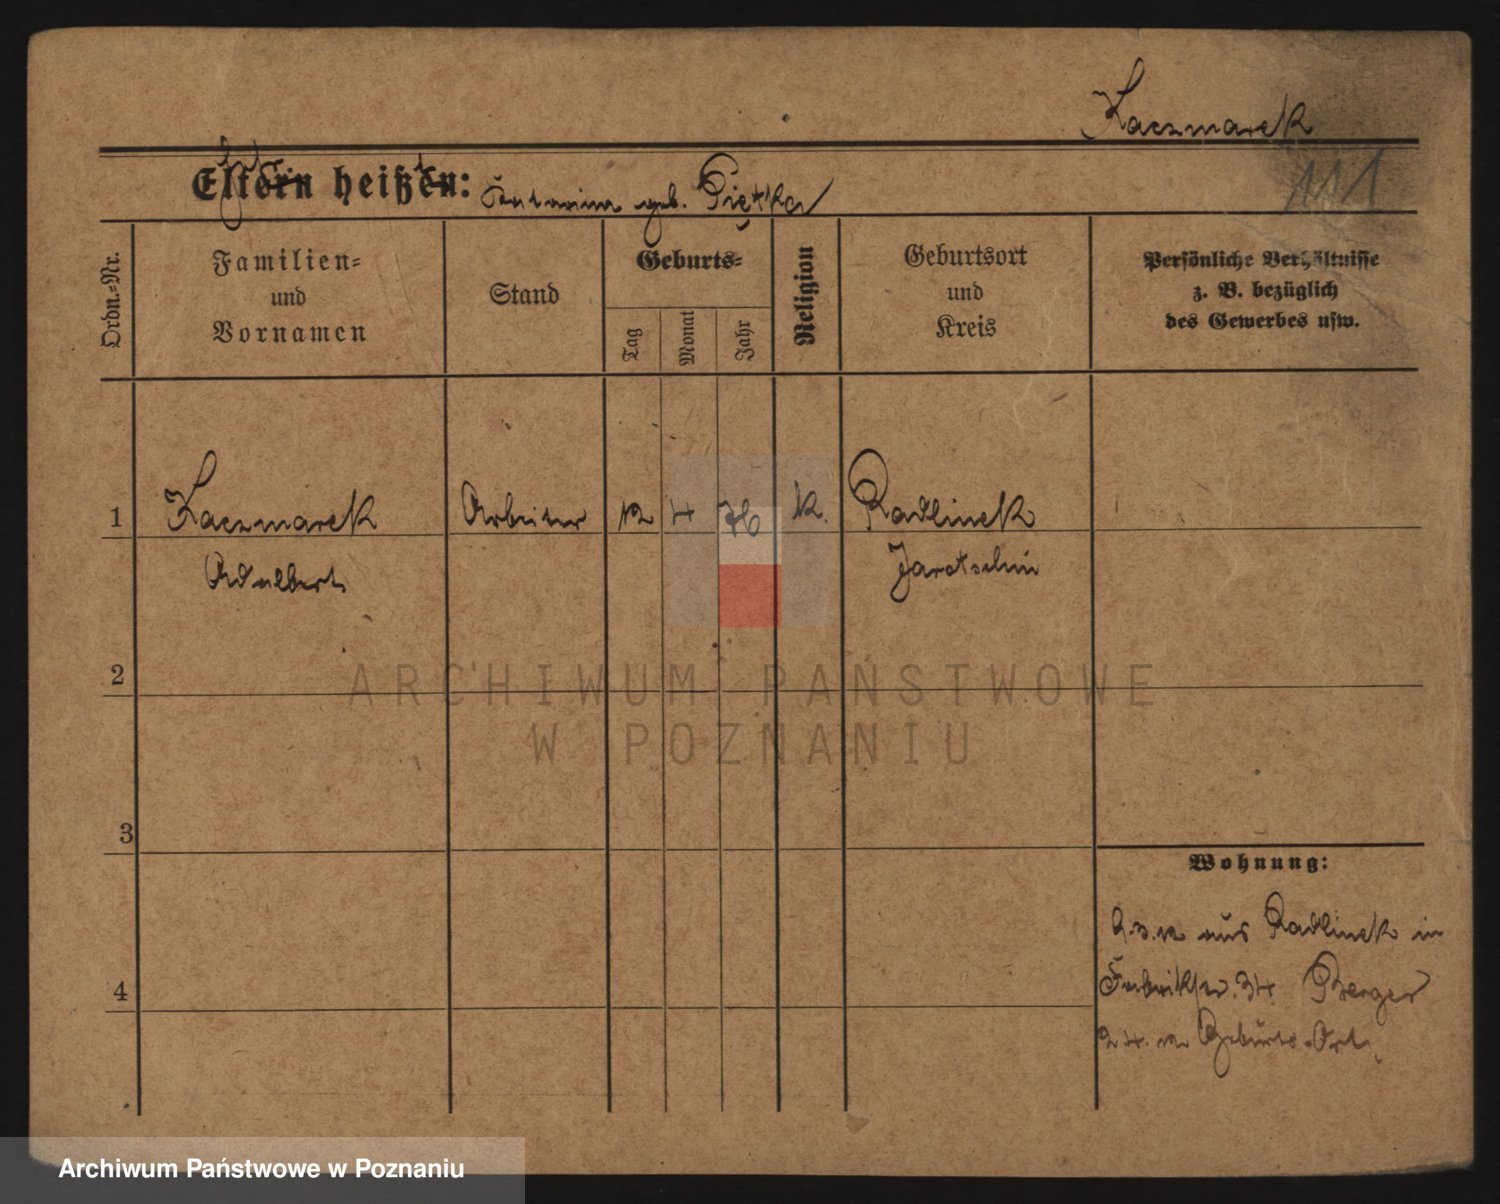 Kaczmarek
111
Eltern heißen: geb. Piętka
Ordn.-Nr.
Familien-
und
Vornamen
Stand
Geburts-
Tag
Monat
Jahr
Religion
Geburtsort
und
Kreis
Persönliche Verhältnisse
z. B. bezüglich
des Gewerbes usw.
1 Kaczmarek Arbeiter 12 4 76 k. Radlinek
Adalbert Jarotschin
2
3
4
ARCHIWUM PAŃSTWOWE
W POZNANIU
Wohnung:
aus Radlinek in
34 Berger
24. Geburts-Ort
Archiwum Państwowe w Poznaniu